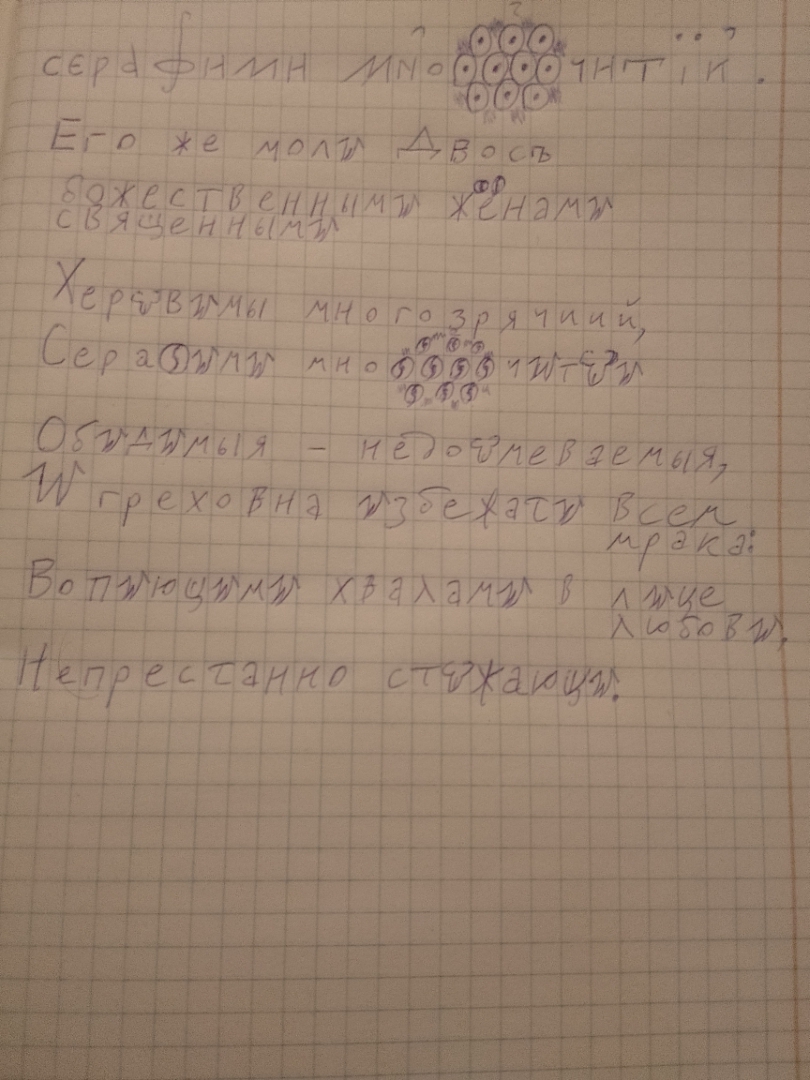 сєрафими мноꙮчитїи.
Его же моли Двось
божественными жѐнами
священными
Херувимы многозрячиий,
Серафими мноꙮчитуи
Обидимыя – недоумеваемыя,
И греховна избежати всем
мрака:
Вопиющими хвалами в лице
любови,
Непрестанно стужающи.